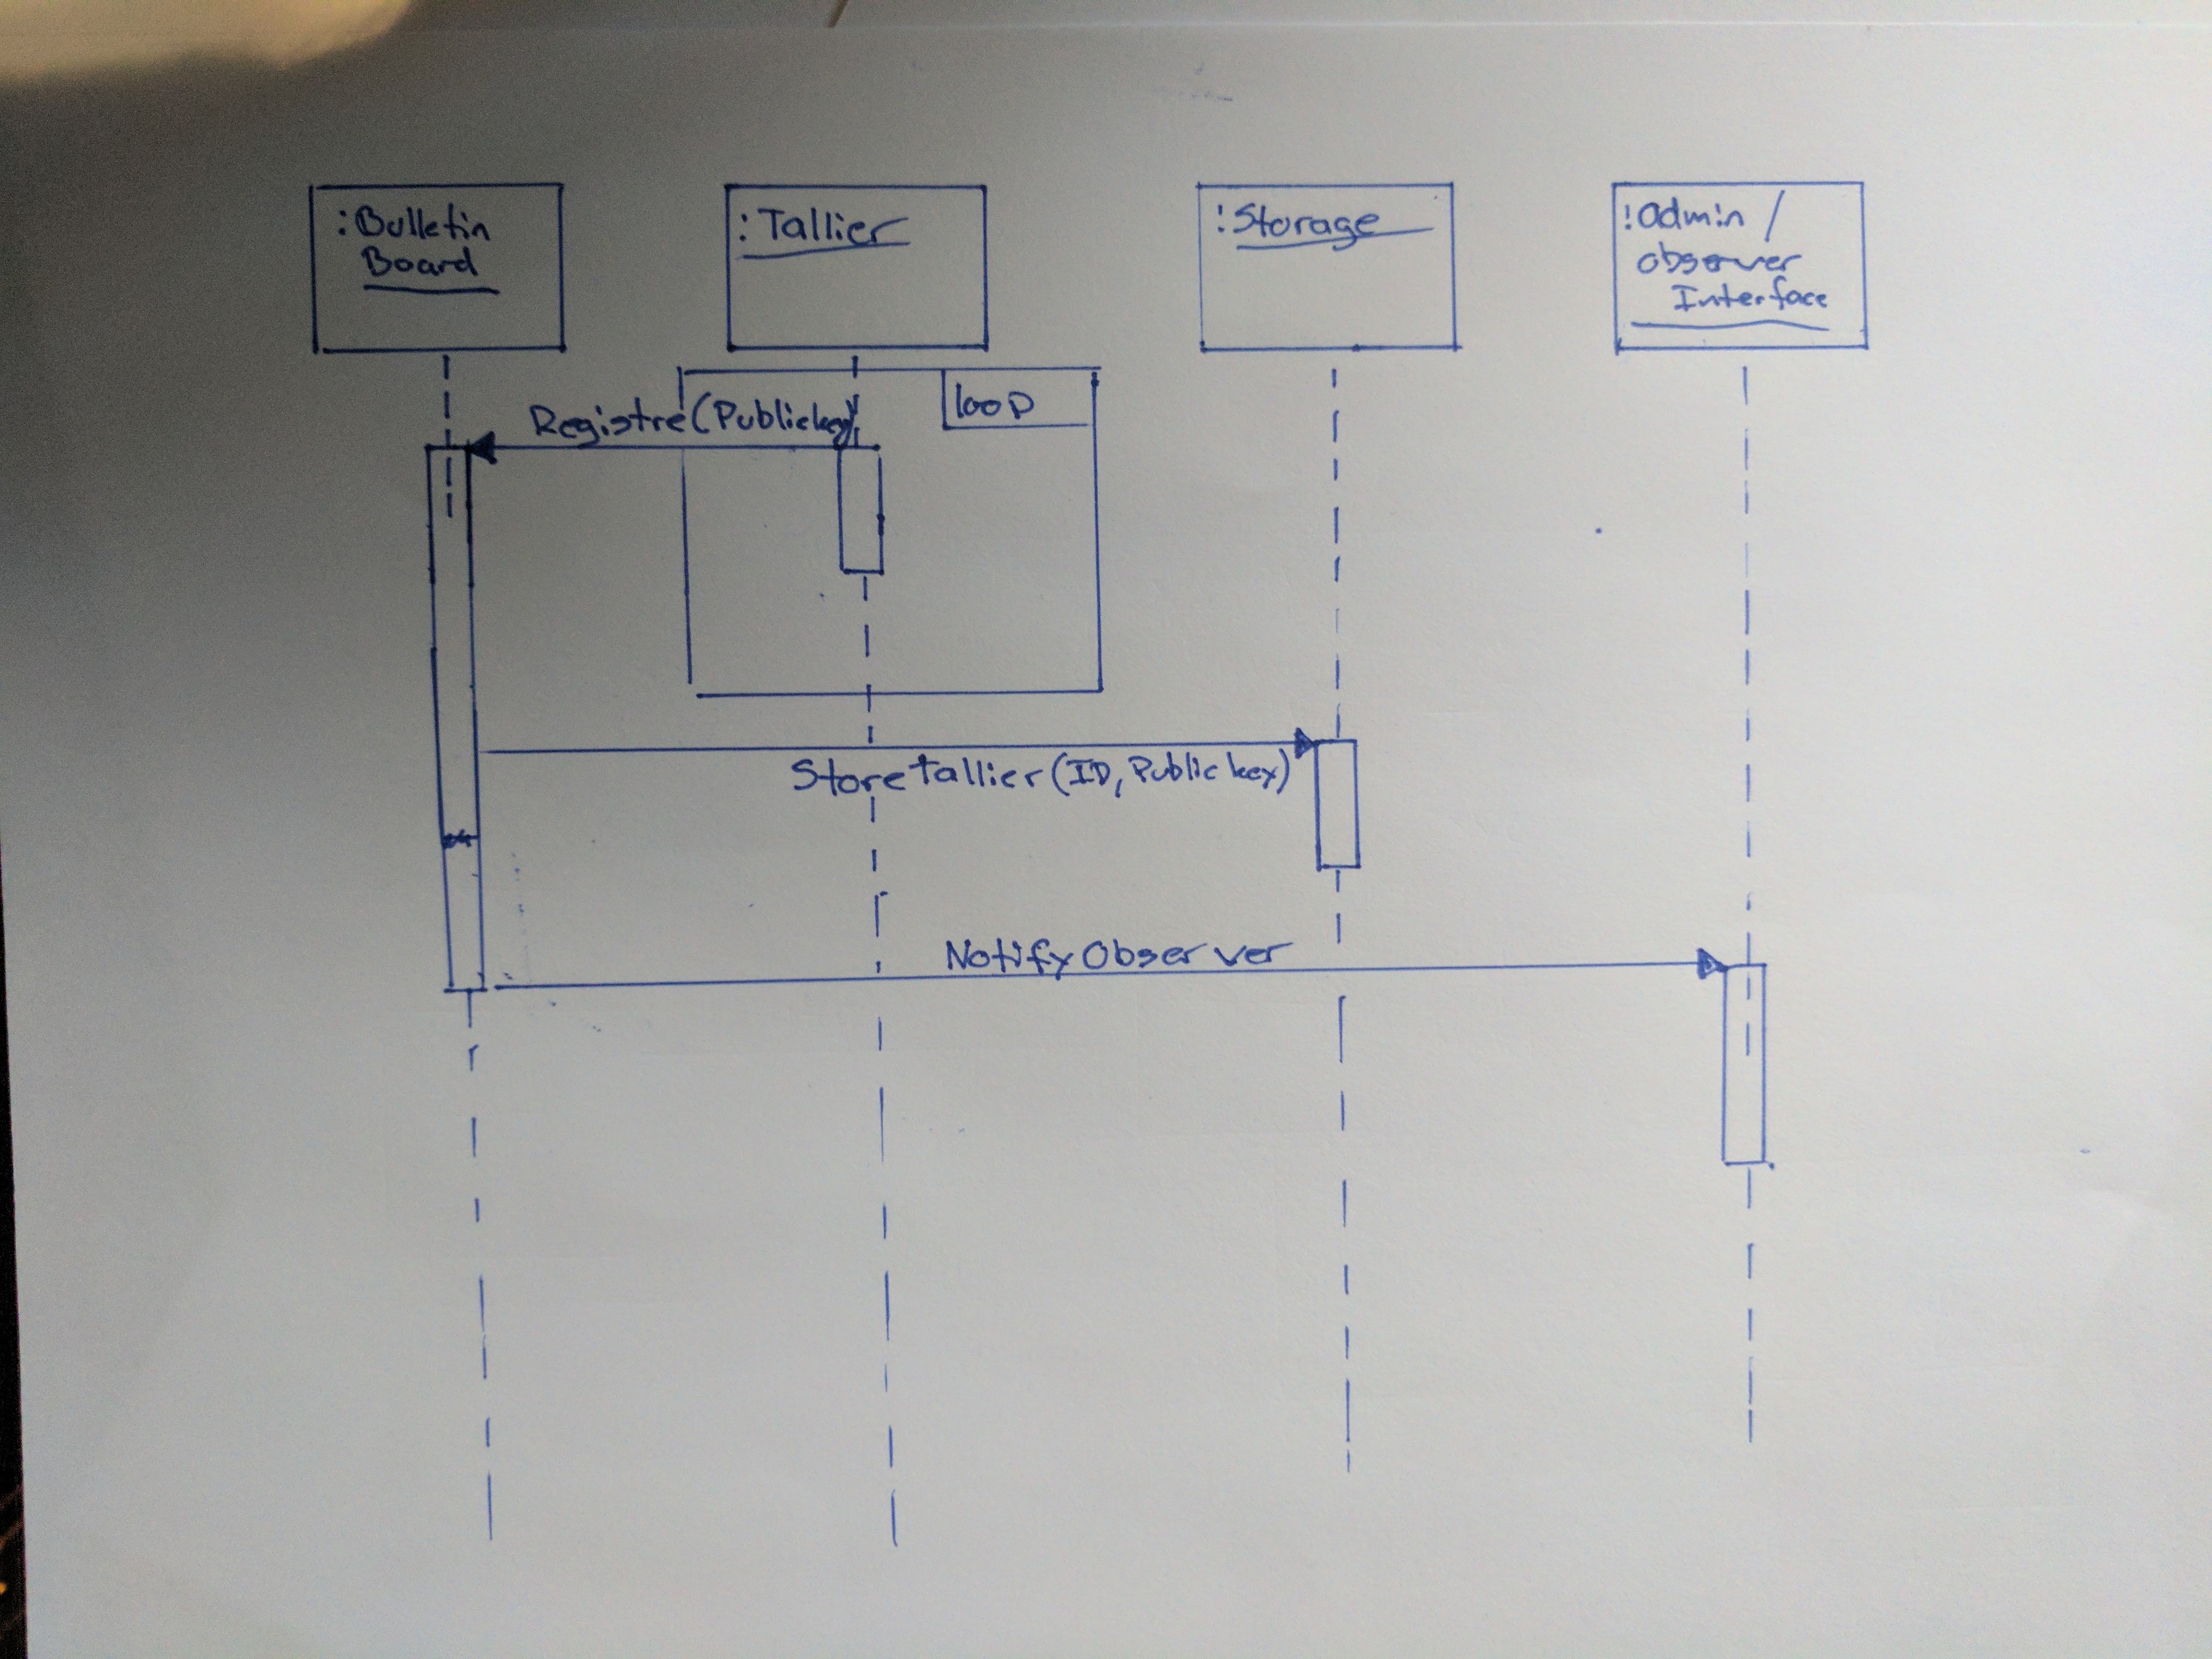 :Bulletin
Board
:Tallier
:Storage
:Admin /
observer
Interface
loop
Registre(Publickey)
Storetallier(ID, Public key)
NotifyObserver